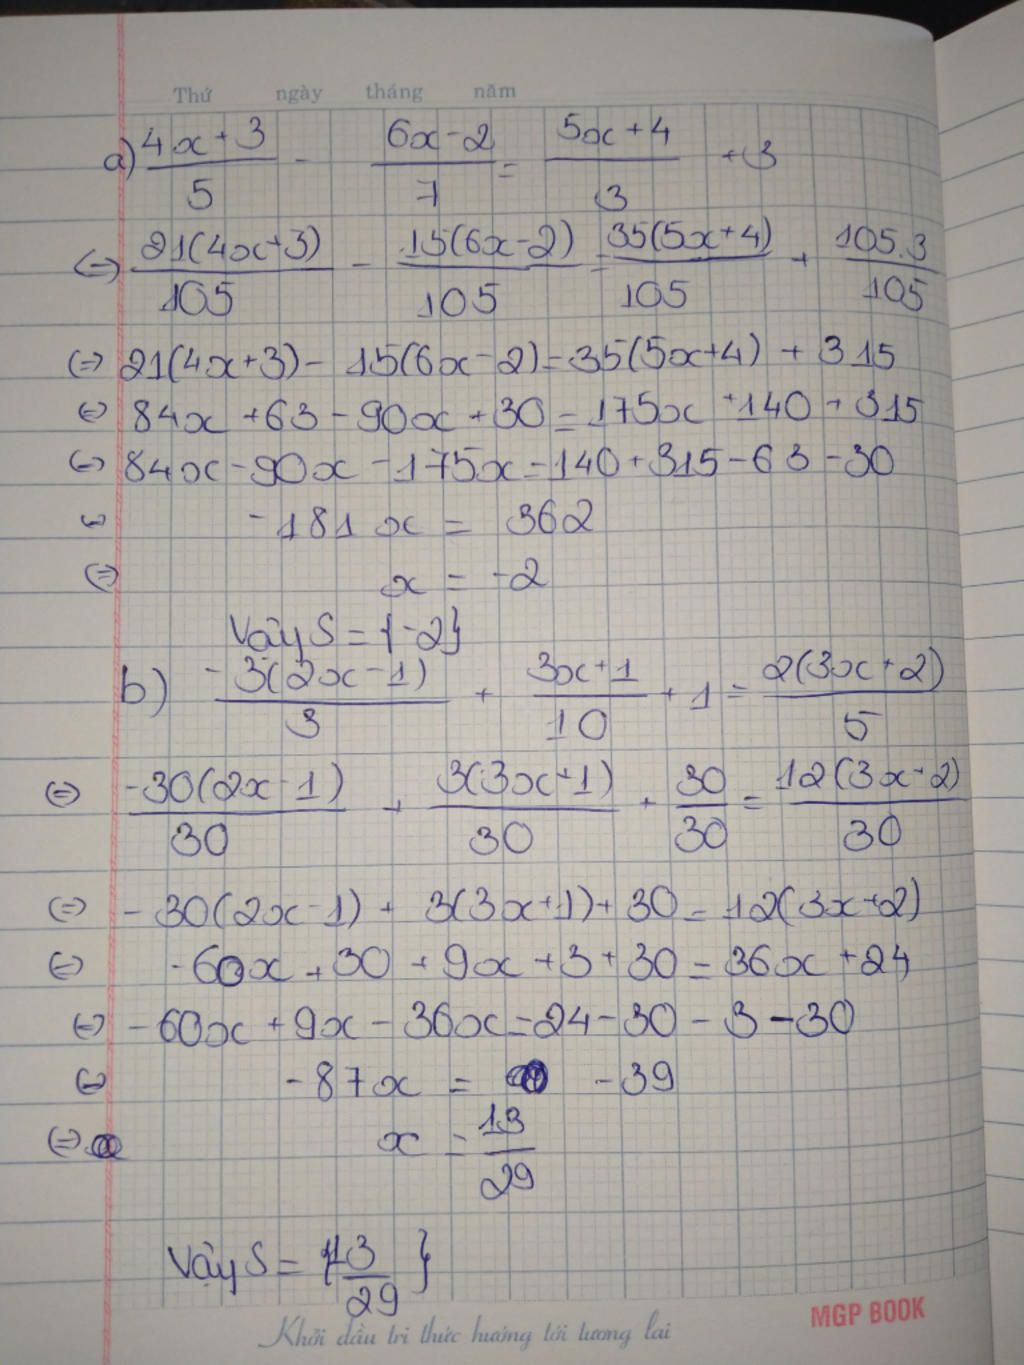 Thứ ngày tháng năm
a) (4x+3)/5 - (6x-2)/7 = (5x+4)/3 + 3
(=) 21(4x+3)/105 - 15(6x-2)/105 = 35(5x+4)/105 + 105.3/105
(=) 21(4x+3) - 15(6x-2) = 35(5x+4) + 315
(=) 84x + 63 - 90x + 30 = 175x + 140 + 315
(=) 84x - 90x - 175x = 140 + 315 - 63 - 30
(=) -181x = 362
(=) x = -2
Vậy S = {-2}
b) -3(2x-1)/3 + (3x+1)/10 + 1 = 2(3x+2)/5
(=) -30(2x-1)/30 + 3(3x+1)/30 + 30/30 = 12(3x+2)/30
(=) -30(2x-1) + 3(3x+1) + 30 = 12(3x+2)
(=) -60x + 30 + 9x + 3 + 30 = 36x + 24
(=) -60x + 9x - 36x = 24 - 30 - 3 - 30
(=) -87x = -39
(=) x = 13/29
Vậy S = {13/29}
Khởi đầu tri thức hướng tới tương lai
MGP BOOK